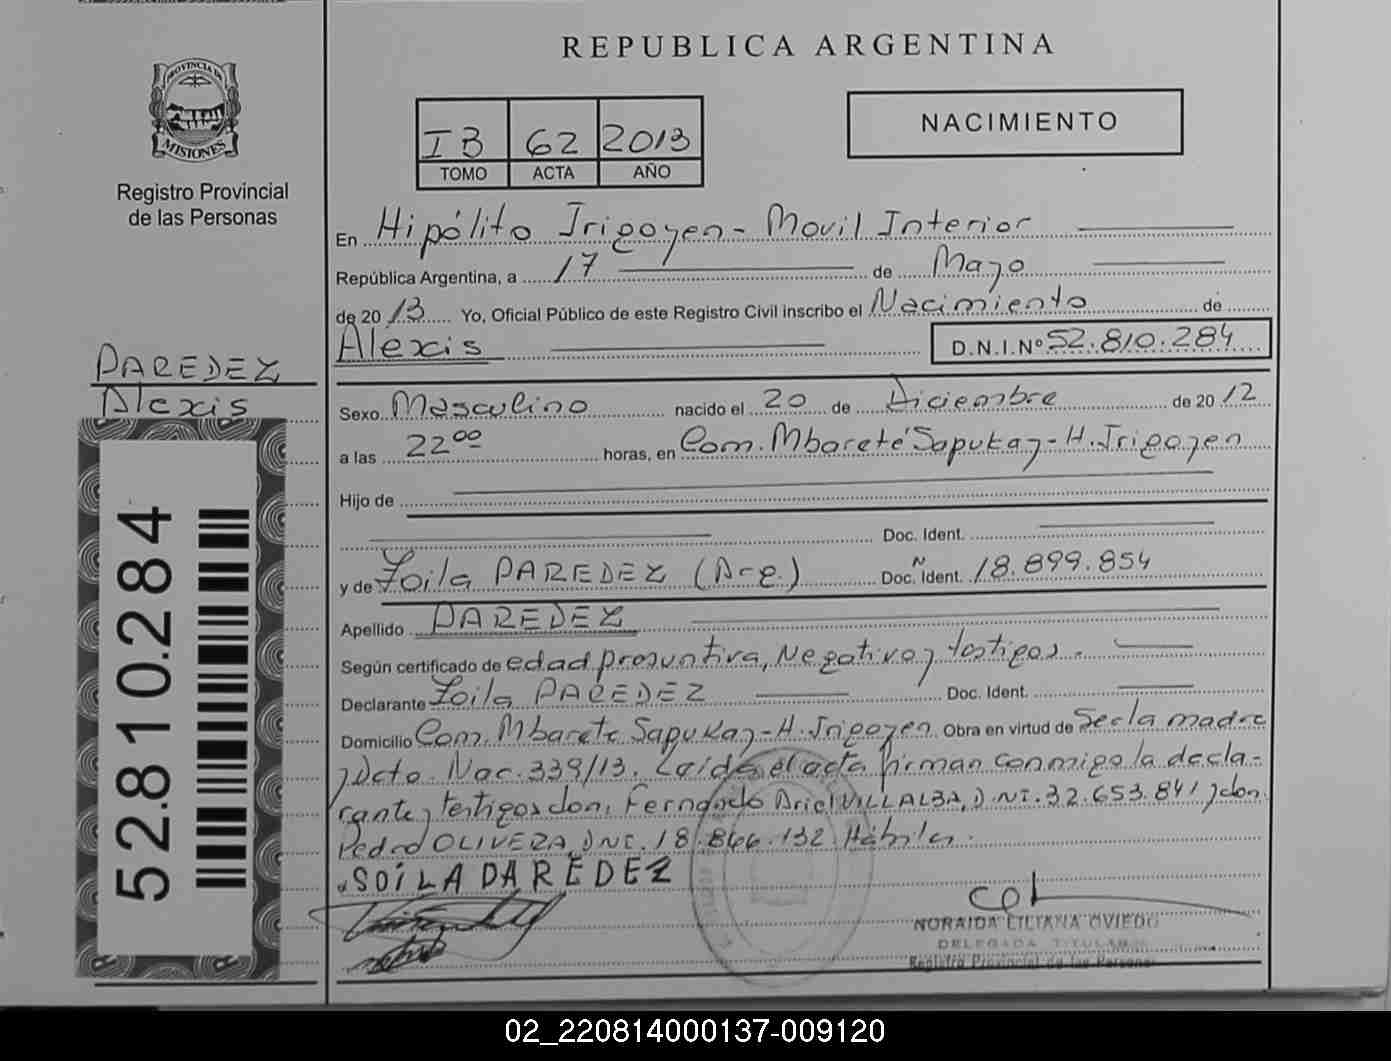 REPUBLICA ARGENTINA
PROVINCIA DE
MISIONES
Registro Provincial
de las Personas
IB 62 2013
TOMO ACTA AÑO
NACIMIENTO
En Hipólito Irigoyen - Movil Interior
República Argentina, a 17 de Mayo
de 2013 Yo, Oficial Público de este Registro Civil inscribo el Nacimiento de
Alexis D.N.I.Nº 52.810.284
PAREDEZ
Alexis
52.810.284
Sexo Masculino nacido el 20 de Diciembre de 2012
a las 22 00 horas, en Com. Mbareté Sapukay - H. Irigoyen
Hijo de
Doc. Ident.
y de Zoila PAREDEZ (Arg.) Doc. Ident. N 18.899.854
Apellido PAREDEZ
Según certificado de edad presuntiva, Negativo y testigos.
Declarante Zoila PAREDEZ Doc. Ident.
Domicilio Com. Mbarete Sapukay - H. Irigoyen Obra en virtud de Ser la madre
y Dcto. Nac. 339/13. Leída el acta firman conmigo la decla-
rante y testigos don, Fernando Ariel VILLALBA, DNI. 32.653.841 y don
Pedro OLIVERA DNI. 18.866.132 Hábiles.
SOILA PAREDEZ
NORAIDA LILIANA OVIEDO
DELEGADA TITULAR
Registro Provincial de las Personas
02_220814000137-009120